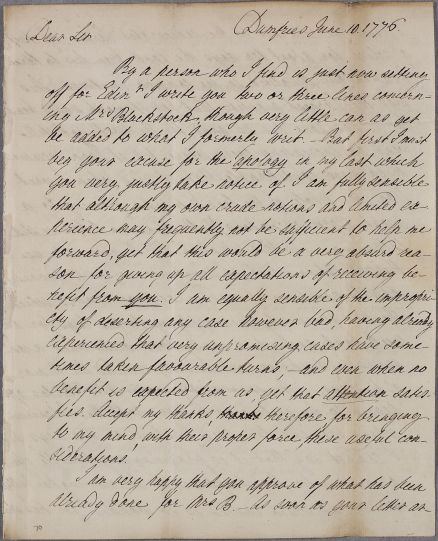 Dumfries June 10. 1776.
Dear Sir
By a person who I find is just now setting
off for Edinr I write you two or three lines concern-
ing Mrs Blackstock, though very little can as yet
be added to what I formerly writ. - But first I must
beg your excuse for the apology in my last which
you very justly take notice of. I am fully sensible
that although my own crude notions and limited ex-
perience may frequently not be sufficient to help me
forward, yet that this would be a very absurd rea-
son for giving up all expectations of receiving be-
nefit from you. I am equally sensible of the impropri-
ety of deserting any case however bad, having already
experienced that very unpromising cases have some-
times taken favourable turns, - and even when no
benefit is expected from us, yet that attention satis-
fies. Accept my thanks therefore for bringing
to my mind with their proper force these useful con-
siderations.
I am very happy that you approve of what has been
already done for Mrs B. - As soon as your letter ar